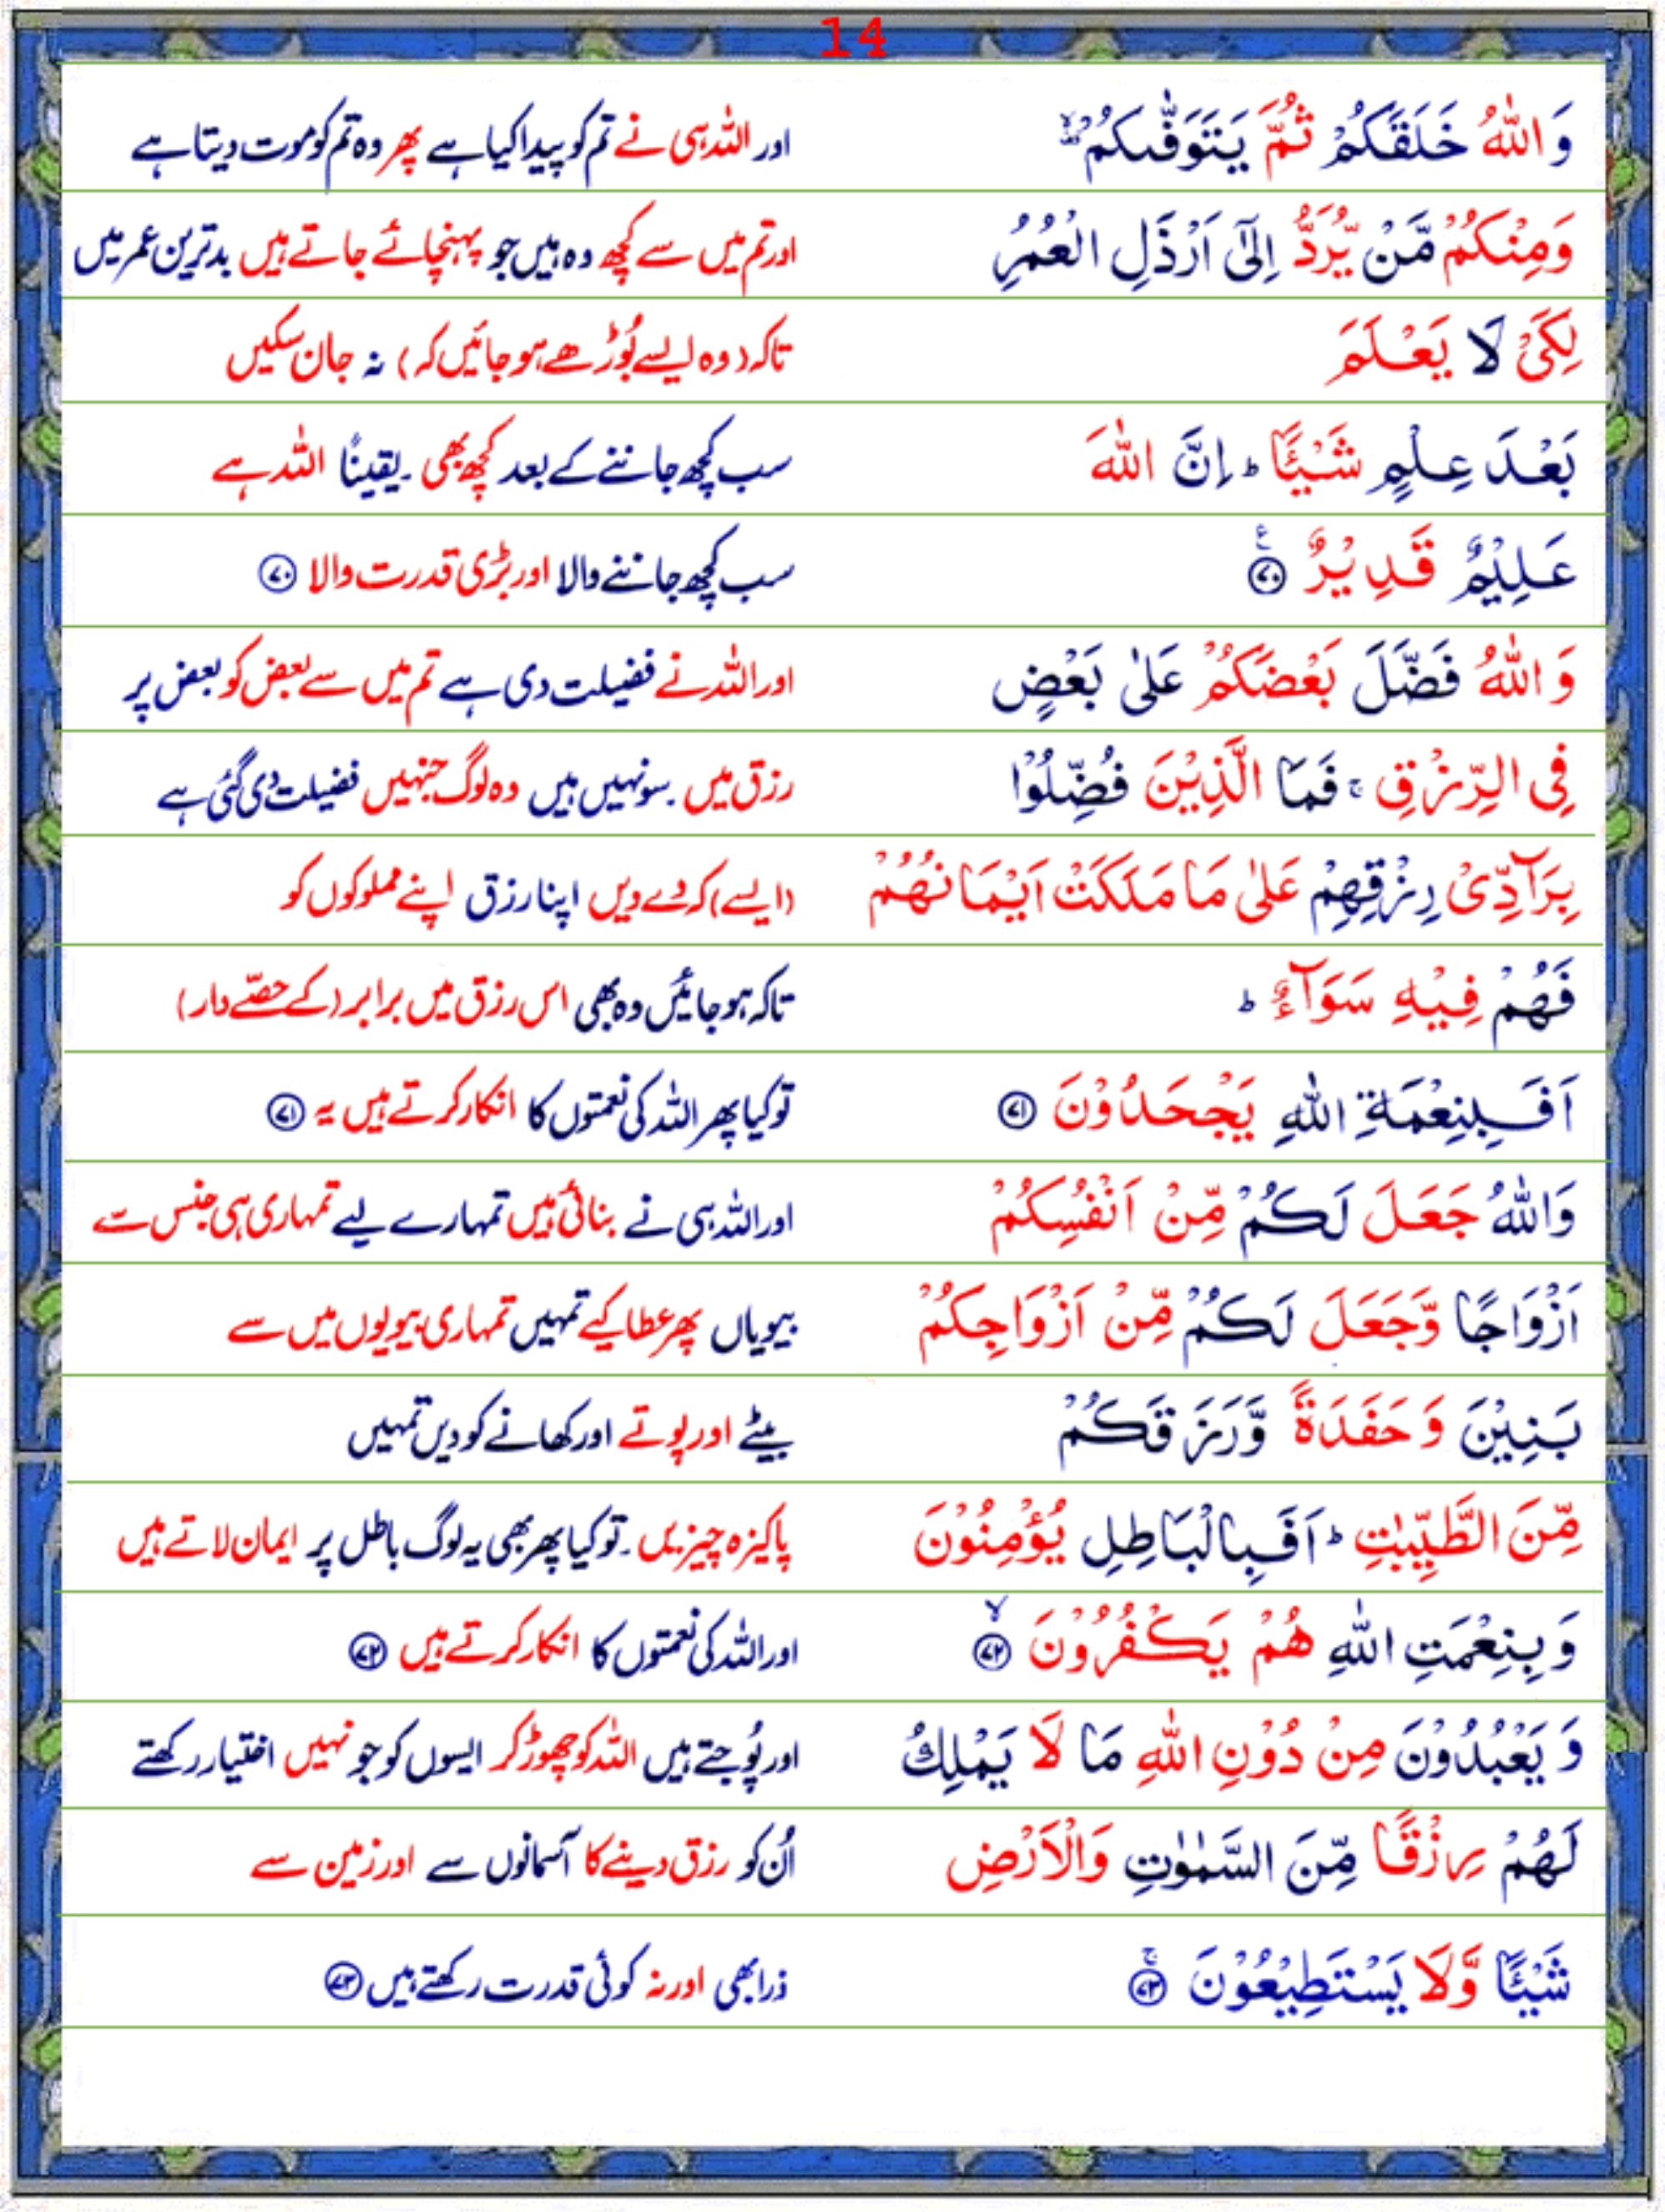 14
وَاللّٰهُ خَلَقَكُمْ ثُمَّ يَتَوَفّٰىكُمْ ۙ اور اللہ ہی نے تم کو پیدا کیا ہے پھر وہ تم کو موت دیتا ہے
وَمِنْكُمْ مَّنْ يُّرَدُّ اِلٰٓى اَرْذَلِ الْعُمُرِ اور تم میں سے کچھ وہ ہیں جو پہنچائے جاتے ہیں بدترین عمر میں
لِكَىْ لَا يَعْلَمَ تاکہ (وہ ایسے بُوڑھے ہوجائیں کہ) نہ جان سکیں
بَعْدَ عِلْمٍ شَيْئًا ؕ اِنَّ اللّٰهَ سب کچھ جاننے کے بعد کچھ بھی۔ یقیناً اللہ ہے
عَلِيْمٌ قَدِيْرٌ ۧ ﴿۷۰﴾ سب کچھ جاننے والا اور بڑی قدرت والا ﴿۷۰﴾
وَاللّٰهُ فَضَّلَ بَعْضَكُمْ عَلٰى بَعْضٍ اور اللہ نے فضیلت دی ہے تم میں سے بعض کو بعض پر
فِى الرِّزْقِ ۚ فَمَا الَّذِيْنَ فُضِّلُوْا رزق میں۔ سو نہیں ہیں وہ لوگ جنہیں فضیلت دی گئی ہے
بِرَآدِّىْ رِزْقِهِمْ عَلٰى مَا مَلَكَتْ اَيْمَانُهُمْ (ایسے) کہ دے دیں اپنا رزق اپنے مملوکوں کو
فَهُمْ فِيْهِ سَوَآءٌ ؕ تاکہ ہوجائیں وہ بھی اس رزق میں برابر (کے حصّے دار)
اَفَبِنِعْمَةِ اللّٰهِ يَجْحَدُوْنَ ﴿۷۱﴾ تو کیا پھر اللہ کی نعمتوں کا انکار کرتے ہیں یہ ﴿۷۱﴾
وَاللّٰهُ جَعَلَ لَكُمْ مِّنْ اَنْفُسِكُمْ اور اللہ ہی نے بنائی ہیں تمہارے لیے تمہاری ہی جنس سے
اَزْوَاجًا وَّجَعَلَ لَكُمْ مِّنْ اَزْوَاجِكُمْ بیویاں پھر عطا کیے تمہیں تمہاری بیویوں میں سے
بَنِيْنَ وَحَفَدَةً وَّرَزَقَكُمْ بیٹے اور پوتے اور کھانے کو دیں تمہیں
مِّنَ الطَّيِّبٰتِ ؕ اَفَبِالْبَاطِلِ يُؤْمِنُوْنَ پاکیزہ چیزیں۔ تو کیا پھر بھی یہ لوگ باطل پر ایمان لاتے ہیں
وَبِنِعْمَتِ اللّٰهِ هُمْ يَكْفُرُوْنَ ۙ ﴿۷۲﴾ اور اللہ کی نعمتوں کا انکار کرتے ہیں ﴿۷۲﴾
وَيَعْبُدُوْنَ مِنْ دُوْنِ اللّٰهِ مَا لَا يَمْلِكُ اور پُوجتے ہیں اللہ کو چھوڑ کر ایسوں کو جو نہیں اختیار رکھتے
لَهُمْ رِزْقًا مِّنَ السَّمٰوٰتِ وَالْاَرْضِ اُن کو رزق دینے کا آسمانوں سے اور زمین سے
شَيْئًا وَّلَا يَسْتَطِيْعُوْنَ ۚ ﴿۷۳﴾ ذرا بھی اور نہ کوئی قدرت رکھتے ہیں ﴿۷۳﴾